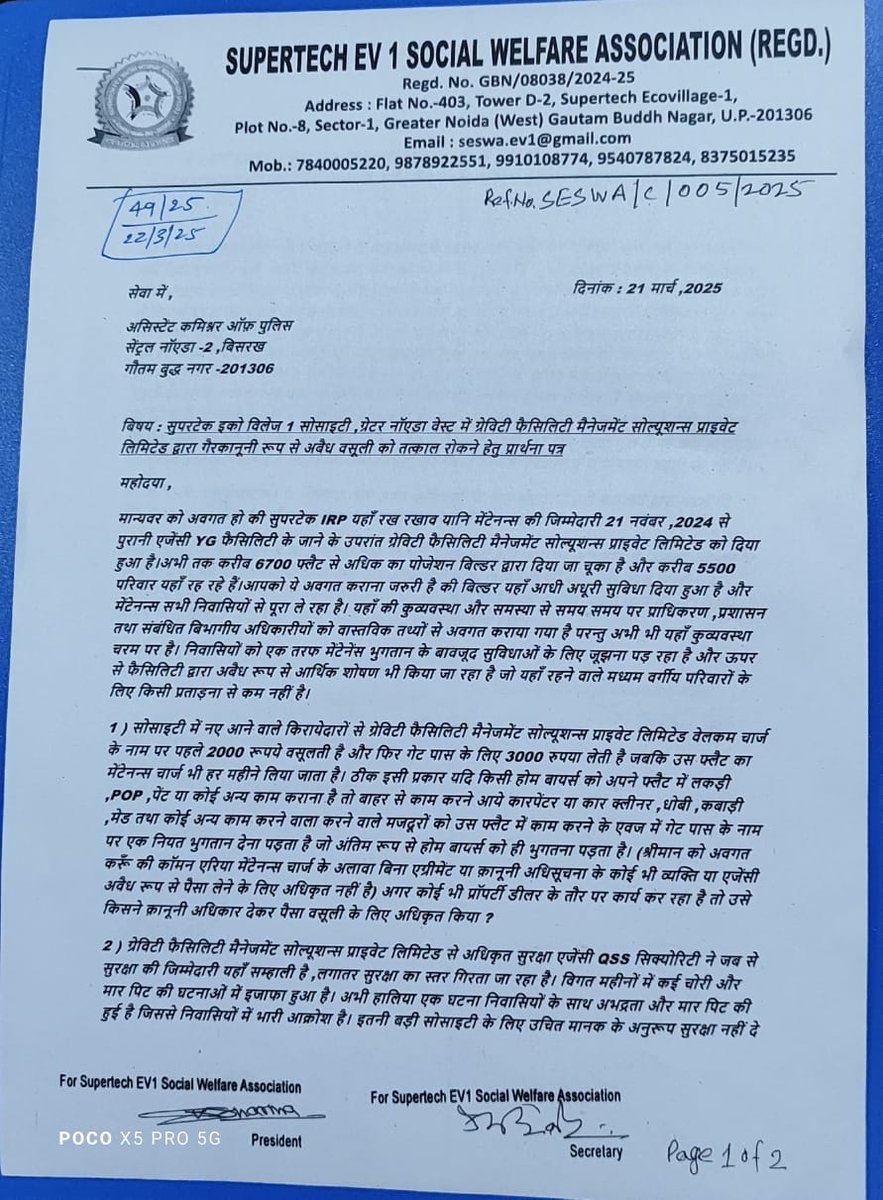 SUPERTECH EV 1 SOCIAL WELFARE ASSOCIATION (REGD.)
Regd. No. GBN/08038/2024-25
Address : Flat No.-403, Tower D-2, Supertech Ecovillage-1,
Plot No.-8, Sector-1, Greater Noida (West) Gautam Buddh Nagar, U.P.-201306
Email : seswa.ev1@gmail.com
Mob.: 7840005220, 9878922551, 9910108774, 9540787824, 8375015235
49/25
22/3/25
Ref.No. SESWA/C/005/2025
सेवा में ,
दिनांक : 21 मार्च ,2025
असिस्टेंट कमिश्नर ऑफ़ पुलिस
सेंट्रल नॉएडा -2 ,बिसरख
गौतम बुद्ध नगर -201306
बिषय : सुपरटेक इको विलेज 1 सोसाइटी ,ग्रेटर नॉएडा वेस्ट में ग्रेविटी फैसिलिटी मैनेजमेंट सोल्यूशन्स प्राइवेट
लिमिटेड द्वारा गैरकानूनी रूप से अबैध वसूली को तत्काल रोकने हेतु प्रार्थना पत्र
महोदया ,
मान्यवर को अवगत हो की सुपरटेक IRP यहाँ रख रखाव यानि मेंटेनन्स की जिम्मेदारी 21 नवंबर ,2024 से
पुरानी एजेंसी YG फैसिलिटी के जाने के उपरांत ग्रेविटी फैसिलिटी मैनेजमेंट सोल्यूशन्स प्राइवेट लिमिटेड को दिया
हुआ है।अभी तक करीब 6700 फ्लैट से अधिक का पोजेशन बिल्डर द्वारा दिया जा चूका है और करीब 5500
परिवार यहाँ रह रहे हैं।आपको ये अवगत कराना जरुरी है की बिल्डर यहाँ आधी अधूरी सुबिधा दिया हुआ है और
मेंटेनन्स सभी निवासियों से पूरा ले रहा है। यहाँ की कुव्यवस्था और समस्या से समय समय पर प्राधिकरण ,प्रशासन
तथा संबंधित बिभागीय अधिकारीयों को वास्तविक तथ्यों से अवगत कराया गया है परन्तु अभी भी यहाँ कुव्यवस्था
चरम पर है। निवासियों को एक तरफ मेंटेनेंस भुगतान के बावजूद सुविधाओं के लिए जूझना पड़ रहा है और ऊपर
से फैसिलिटी द्वारा अबैध रूप से आर्थिक शोषण भी किया जा रहा है जो यहाँ रहने वाले मध्यम वर्गीय परिवारों के
लिए किसी प्रताड़ना से कम नहीं है।
1 ) सोसाइटी में नए आने वाले किरायेदारों से ग्रेविटी फैसिलिटी मैनेजमेंट सोल्यूशन्स प्राइवेट लिमिटेड वेलकम चार्ज
के नाम पर पहले 2000 रूपये वसूलती है और फिर गेट पास के लिए 3000 रुपया लेती है जबकि उस फ्लैट का
मेंटेनन्स चार्ज भी हर महीने लिया जाता है। ठीक इसी प्रकार यदि किसी होम बायर्स को अपने फ्लैट में लकड़ी
,POP ,पेंट या कोई अन्य काम कराना है तो बाहर से काम करने आये कारपेंटर या कार क्लीनर ,धोबी ,कबाड़ी
,मेड तथा कोई अन्य काम करने वाला करने वाले मजदूरों को उस फ्लैट में काम करने के एवज में गेट पास के नाम
पर एक नियत भुगतान देना पड़ता है जो अंतिम रूप से होम बायर्स को ही भुगतना पड़ता है। (श्रीमान को अवगत
करूँ की कॉमन एरिया मेंटेनन्स चार्ज के अलावा बिना एग्रीमेंट या क़ानूनी अधिसूचना के कोई भी व्यक्ति या एजेंसी
अवैध रूप से पैसा लेने के लिए अधिकृत नहीं है) अगर कोई भी प्रॉपर्टी डीलर के तौर पर कार्य कर रहा है तो उसे
किसने क़ानूनी अधिकार देकर पैसा वसूली के लिए अधिकृत किया ?
2 ) ग्रेविटी फैसिलिटी मैनेजमेंट सोल्यूशन्स प्राइवेट लिमिटेड से अधिकृत सुरक्षा एजेंसी QSS सिक्योरिटी ने जब से
सुरक्षा की जिम्मेदारी यहाँ सम्हाली है ,लगातर सुरक्षा का स्तर गिरता जा रहा है। विगत महीनों में कई चोरी और
मार पिट की घटनाओं में इजाफा हुआ है। अभी हालिया एक घटना निवासियों के साथ अभद्रता और मार पिट की
हुई है जिससे निवासियों में भारी आक्रोश है। इतनी बड़ी सोसाइटी के लिए उचित मानक के अनुरूप सुरक्षा नहीं दे
For Supertech EV1 Social Welfare Association
For Supertech EV1 Social Welfare Association
President
Secretary
Page 1 of 2
POCO X5 PRO 5G